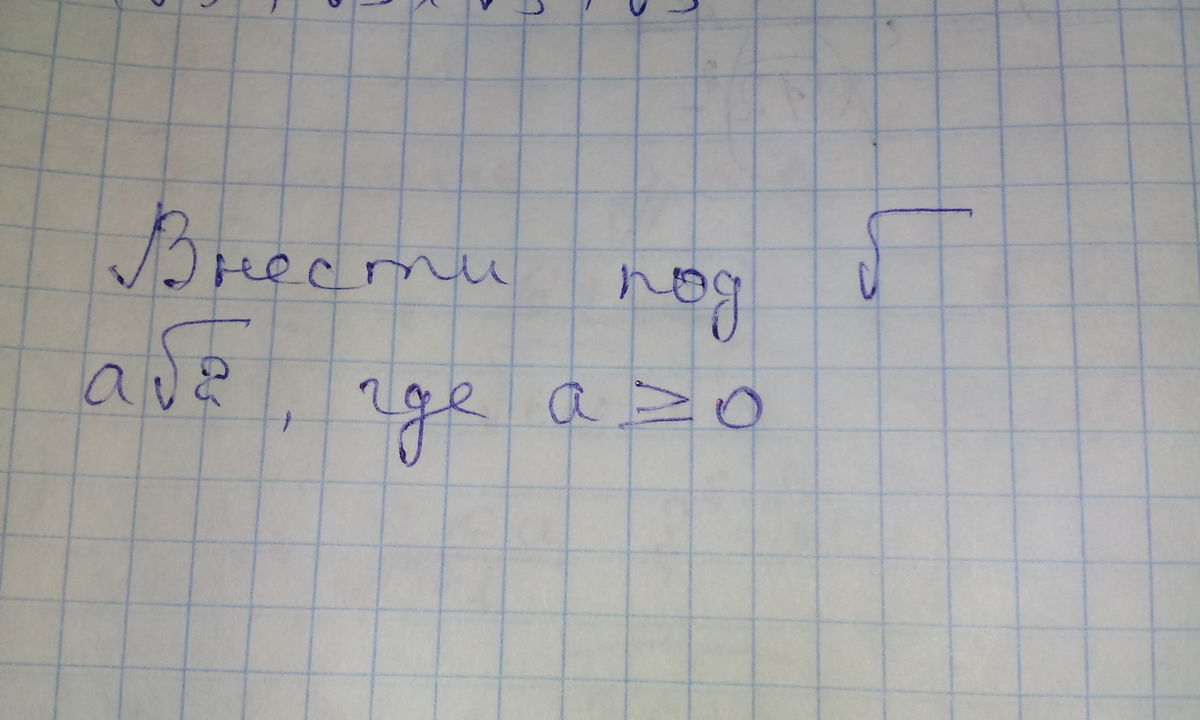 Внести под √
a√2, где a ≥ 0